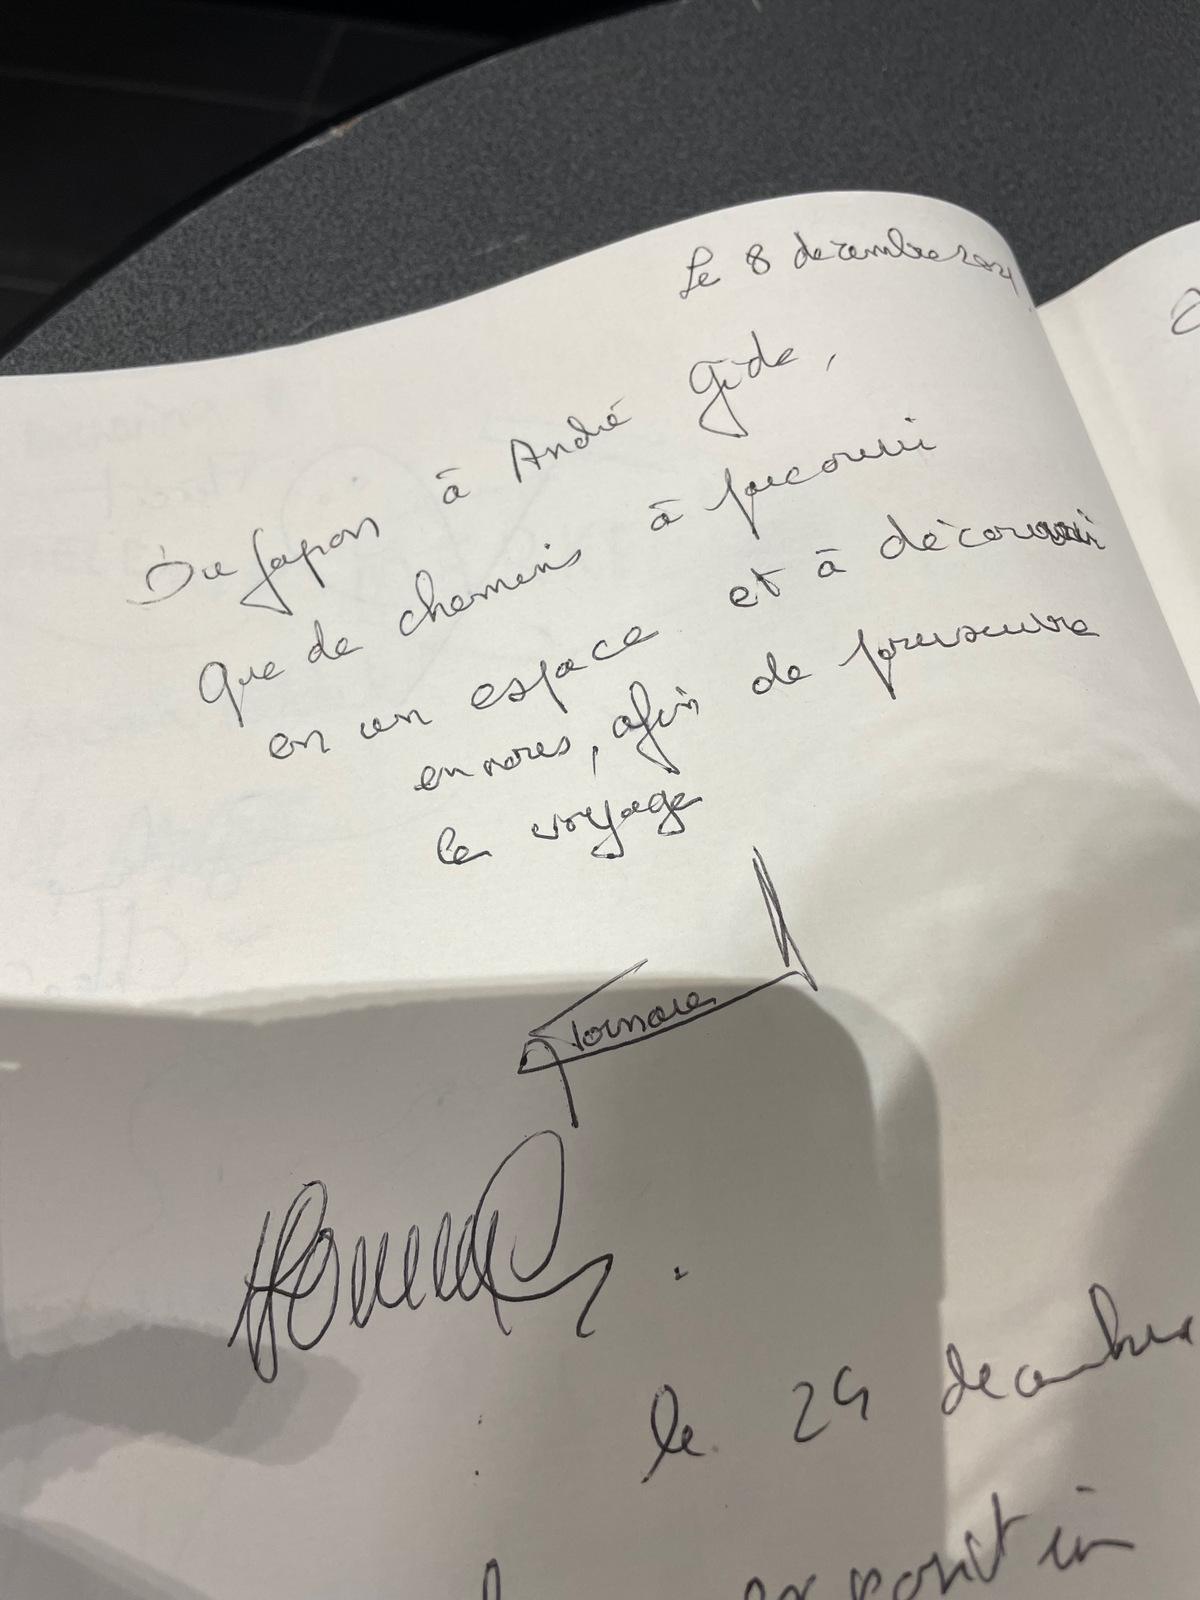 Le 8 décembre 2024
Du Japon à André Gide,
que de chemins à parcourir
en un espace et à découvrir
encores, afin de poursuivre
le voyage
Tornare
le 29 décembre
exposition